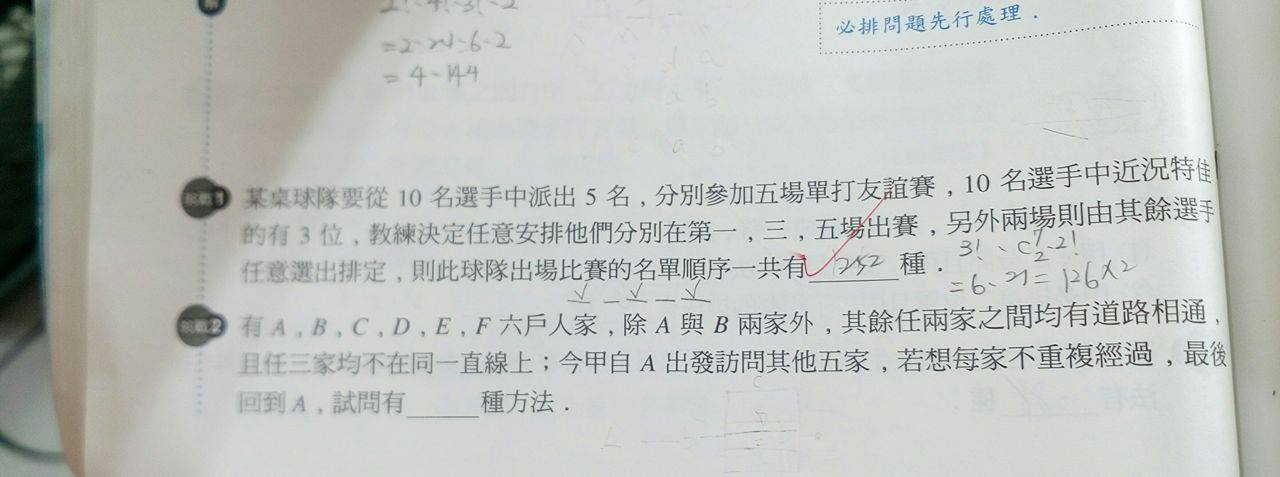 = 4 - 144
必排問題先行處理．
某桌球隊要從 10 名選手中派出 5 名，分別參加五場單打友誼賽，10 名選手中近況特佳
的有 3 位，教練決定任意安排他們分別在第一，三，五場出賽，另外兩場則由其餘選手
任意選出排定，則此球隊出場比賽的名單順序一共有 252 種．
= 126×2
有 A，B，C，D，E，F 六戶人家，除 A 與 B 兩家外，其餘任兩家之間均有道路相通，
且任三家均不在同一直線上；今甲自 A 出發訪問其他五家，若想每家不重複經過，最後
回到 A，試問有______種方法．